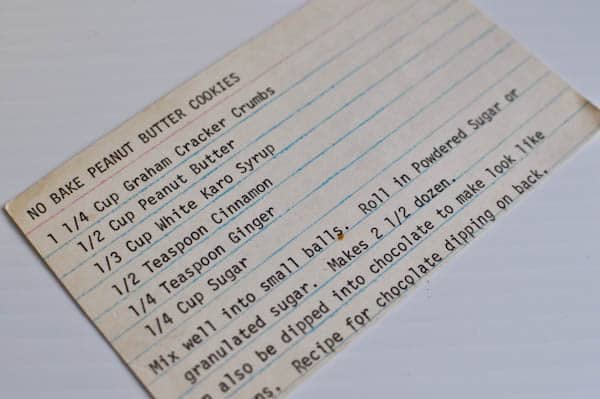 NO BAKE PEANUT BUTTER COOKIES
1 1/4 Cup Graham Cracker Crumbs
1/2 Cup Peanut Butter
1/3 Cup White Karo Syrup
1/2 Teaspoon Cinnamon
1/4 Teaspoon Ginger
1/4 Cup Sugar
Mix well into small balls. Roll in Powdered Sugar or
granulated sugar. Makes 2 1/2 dozen.
also be dipped into chocolate to make look like
Recipe for chocolate dipping on back.